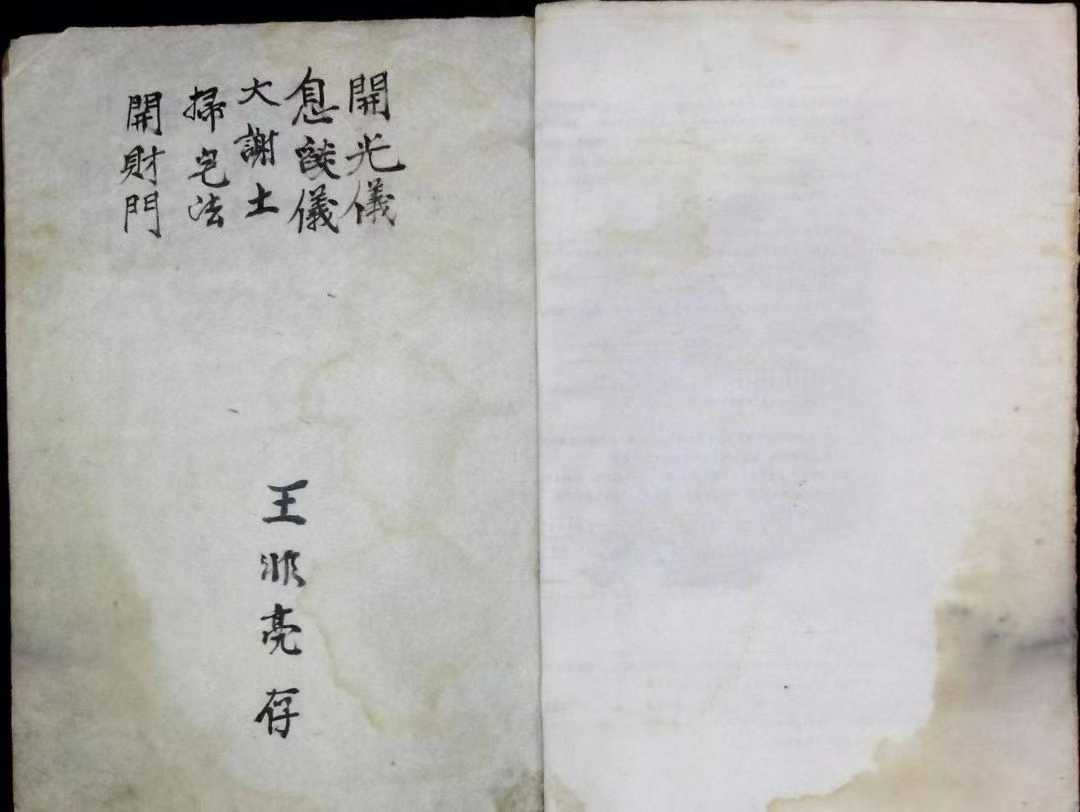 開光儀
息談儀
大謝土
掃宅法
開財門
王兆亮 存